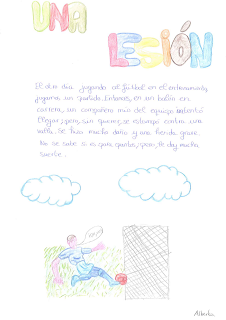 UNA
LESIÓN
El otro día jugando al fútbol en el entrenamiento,
jugamos un partido. Entonces, en un balón en
carrera, un compañero mio del equipo intentó
llegar, pero, sin querer, se estampó contra una
valla. Se hizo mucho daño y una herida grave.
No se sabe si se podrá, pero, le doy mucha
suerte.
Alberto